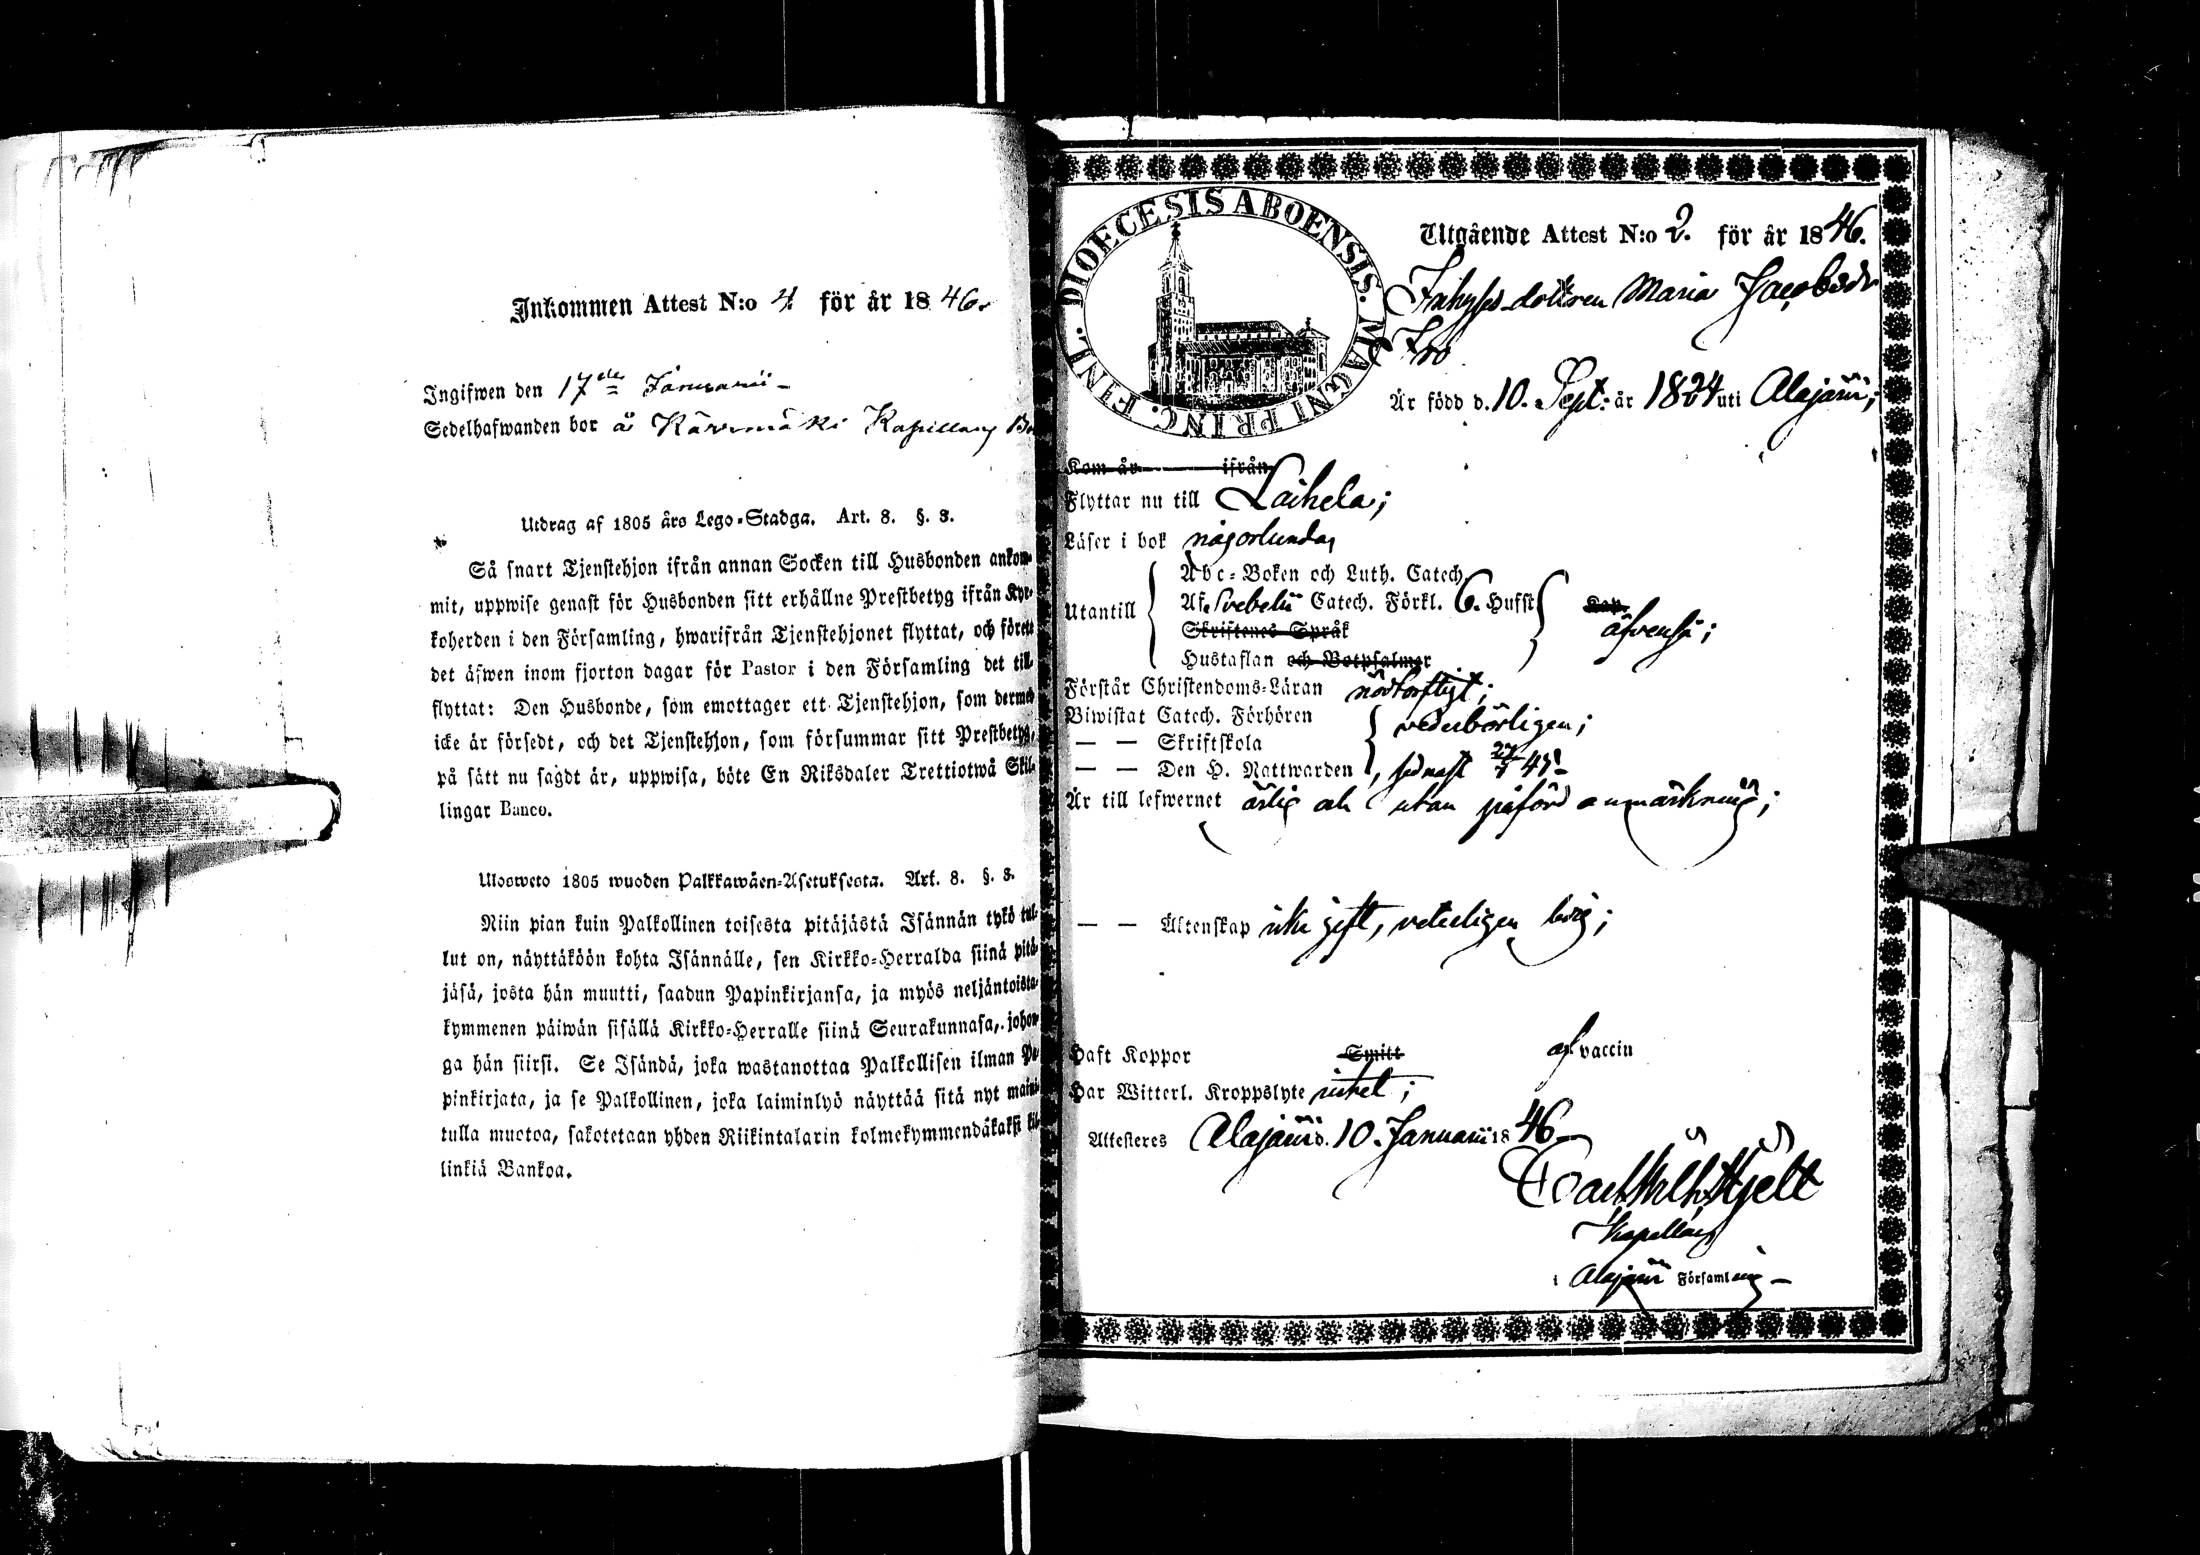 Inkommen Attest N:o 4 för år 1846.
Ingifwen den 17de Januarii –
Sedelhafwanden bor å Kapellans
Utdrag af 1805 års Lego-Stadga. Art. 8. §. 3.
Så snart Tjenstehjon ifrån annan Socken till Husbonden ankom-
mit, uppwise genast för Husbonden sitt erhållne Prestbetyg ifrån Kyr-
koherden i den Församling, hwarifrån Tjenstehjonet flyttat, och förete
det äfwen inom fjorton dagar för Pastor i den Församling det till-
flyttat: Den Husbonde, som emottager ett Tjenstehjon, som dermed
icke är försedt, och det Tjenstehjon, som försummar sitt Prestbetyg,
på sätt nu sagdt är, uppwisa, böte En Riksdaler Trettiotwå Skil-
lingar Banco.
Ulosweto 1805 wuoden Palkkawäen-Asetuksesta. Art. 8. §. 3.
Niin pian kuin Palkollinen toisesta pitäjästä Isännän tykö tul-
lut on, näyttäköön kohta Isännälle, sen Kirkko-Herralda siinä pitä-
jäsä, josta hän muutti, saadun Papinkirjansa, ja myös neljäntoista-
kymmenen päiwän sisällä Kirkko-Herralle siinä Seurakunnasa, johon-
ga hän siirsi. Se Isändä, joka wastanottaa Palkollisen ilman Pa-
pinkirjata, ja se Palkollinen, joka laiminlyö näyttää sitä nyt maini-
tulla muotoa, sakotetaan yhden Riikintalarin kolmekymmendäkaksi kil-
linkiä Bankoa.
DIOECESIS ABOENSIS. MAGNI PRINC. FINL.
Utgående Attest N:o 2. för år 1846.
dottren Maria Jacobsdr
Är född d. 10. Sept: år 1824 uti Alajärvi;
Kom år ifrån
Flyttar nu till Laihela;
Läser i bok någorlunda,
Utantill
Abc-Boken och Luth. Catech.
Af Svebelii Catech. Förkl. 6. Hufst
Skriftenes Språk
Hustaflan och Botpsalmer
Kap.
äfvenså;
Förstår Christendoms-Läran nödtorftigt;
Biwistat Catech. Förhören
— — Skriftskola
— — Den H. Nattwarden
vederbörligen;
, sednast 27/7 45. –
Är till lefwernet ärlig och utan påförd anmärkning;
— — Äktenskap icke gift, veterligen ledig;
Haft Koppor Smitt af vaccin
Har Witterl. Kroppslyte intet;
Attesteres Alajärvi d. 10. Januarii 1846.
Carl Wilh. Hjelt
Kapellan
i Alajärvi Församling –